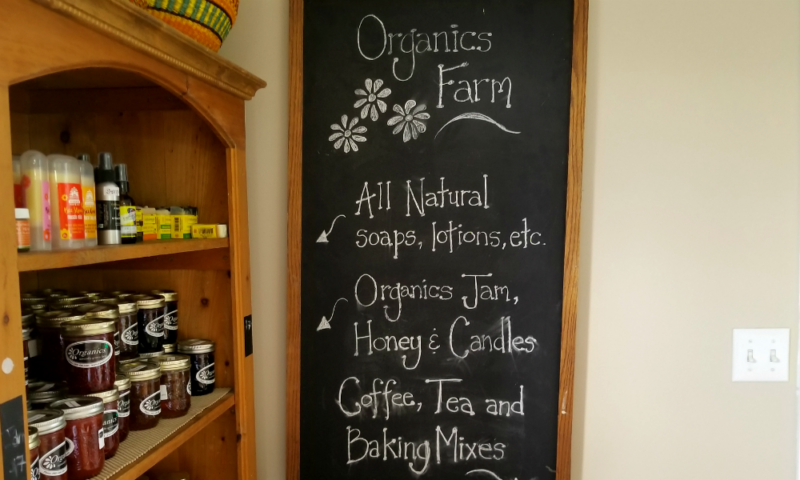 Organics
Farm
All Natural
soaps, lotions, etc.
Organics Jam,
Honey & Candles
Coffee, Tea and
Baking Mixes
Organics